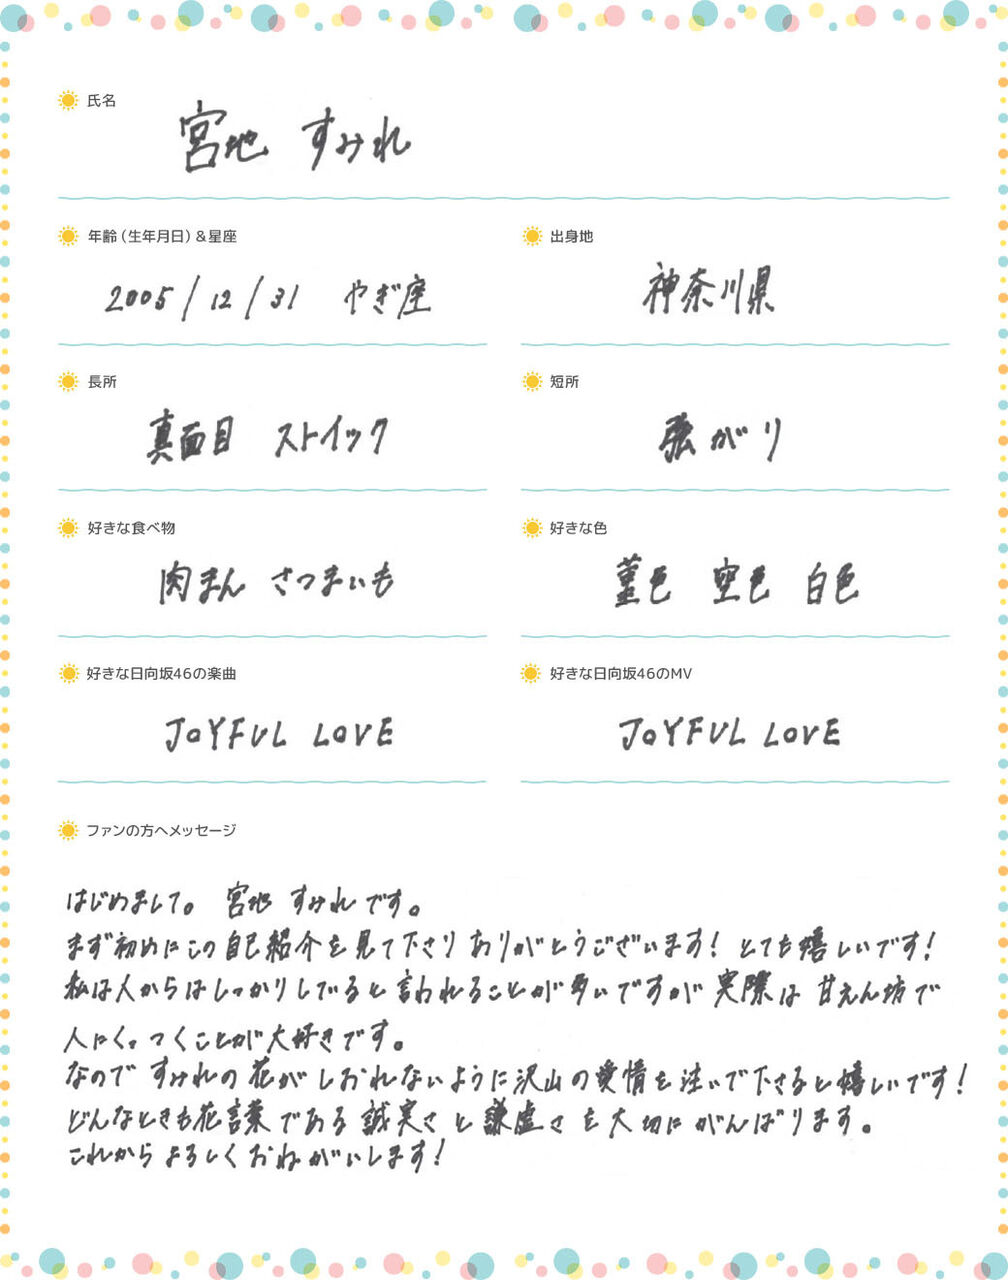 氏名
宮地 すみれ
年齢（生年月日）＆星座
出身地
2005/12/31 やぎ座
神奈川県
長所
短所
真面目 ストイック
強がり
好きな食べ物
好きな色
肉まん さつまいも
菫色 空色 白色
好きな日向坂46の楽曲
好きな日向坂46のMV
JOYFUL LOVE
JOYFUL LOVE
ファンの方へメッセージ
はじめまして。 宮地 すみれです。
まず初めにこの自己紹介を見て下さりありがとうございます! とても嬉しいです!
私は人からはしっかりしていると言われることが多いですが実際は甘えん坊で
人にくっつくことが大好きです。
なのですみれの花がしおれないように沢山の愛情を注いで下さると嬉しいです!
どんなときも花言葉である誠実さと謙虚さを大切にがんばります。
これからよろしくおねがいします!